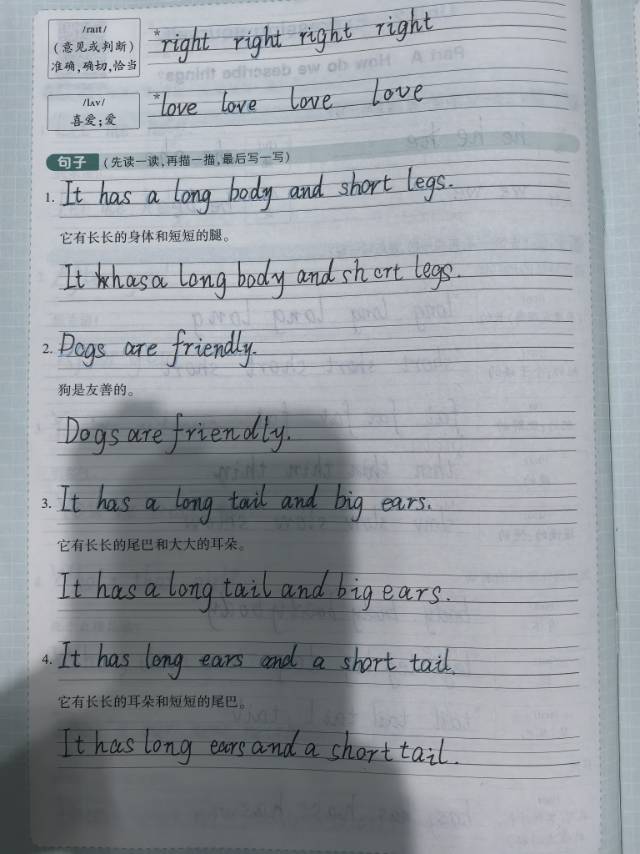 /raɪt/
(意见或判断)
准确,确切,恰当
*right right right right
/lʌv/
喜爱;爱
*love love love love
句子 (先读一读,再描一描,最后写一写)
1. It has a long body and short legs.
它有长长的身体和短短的腿。
It has a long body and short legs.
2. Dogs are friendly.
狗是友善的。
Dogs are friendly.
3. It has a long tail and big ears.
它有长长的尾巴和大大的耳朵。
It has a long tail and big ears.
4. It has long ears and a short tail.
它有长长的耳朵和短短的尾巴。
It has long ears and a short tail.